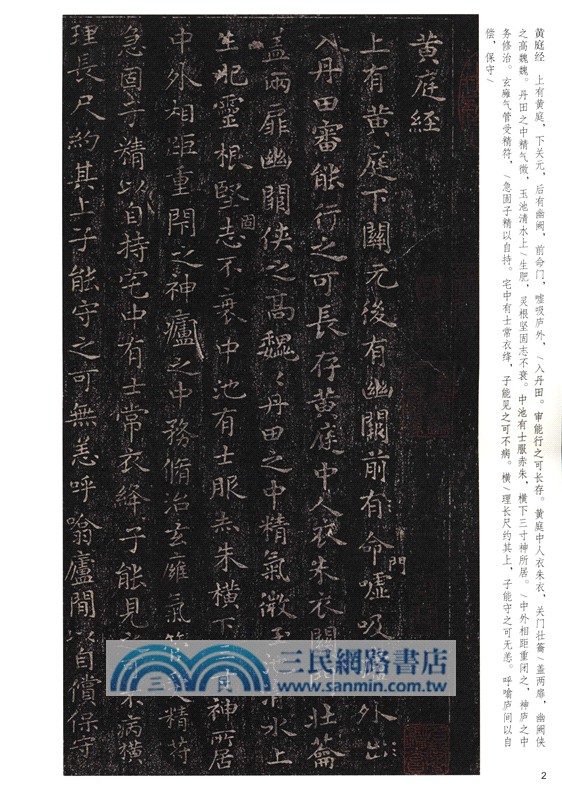 黄庭经　上有黄庭，下关元，后有幽阙，前命门，嘘吸庐外，\入丹田。审能行之可长存。黄庭中人衣朱衣，关门壮籥\盖两扉，幽阙侠
之高巍巍。丹田之中精气微，玉池清水上\生肥，灵根坚固志不衰。中池有士服赤朱，横下三寸神所居。\中外相距重闭之，神庐之中
务修治。玄廱气管受精符，\急固子精以自持。宅中有士常衣绛，子能见之可不病。横\理长尺约其上，子能守之可无恙。呼噏庐间以自
偿，保守\
黄庭經
上有黄庭下關元後有幽闕前有命門嘘吸廬外出
入丹田審能行之可長存黄庭中人衣朱衣關門壯籥
盖兩扉幽闕侠之高巍〻丹田之中精氣微玉池清水上
生肥靈根堅固志不衰中池有士服赤朱横下三寸神所居
中外相距重閇之神廬之中務脩治玄廱氣管受精符
急固子精以自持宅中有士常衣絳子能見之可不病横
理長尺約其上子能守之可無恙呼噏廬間以自償保守
三民網路書店
www.sanmin.com.tw
2